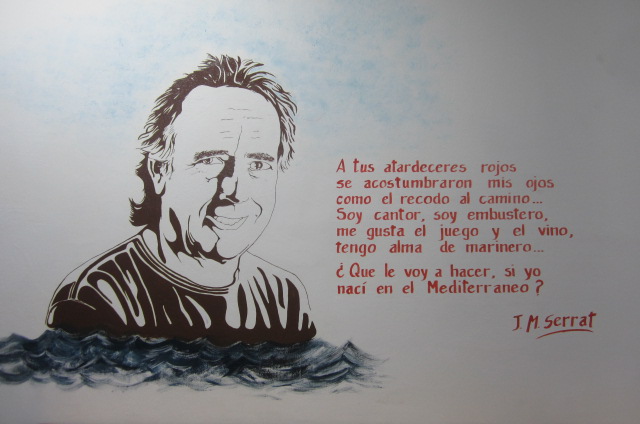 A tus atardeceres rojos
se acostumbraron mis ojos
como el recodo al camino...
Soy cantor, soy embustero,
me gusta el juego y el vino,
tengo alma de marinero...
¿Que le voy a hacer, si yo
nací en el Mediterraneo?
J. M. Serrat